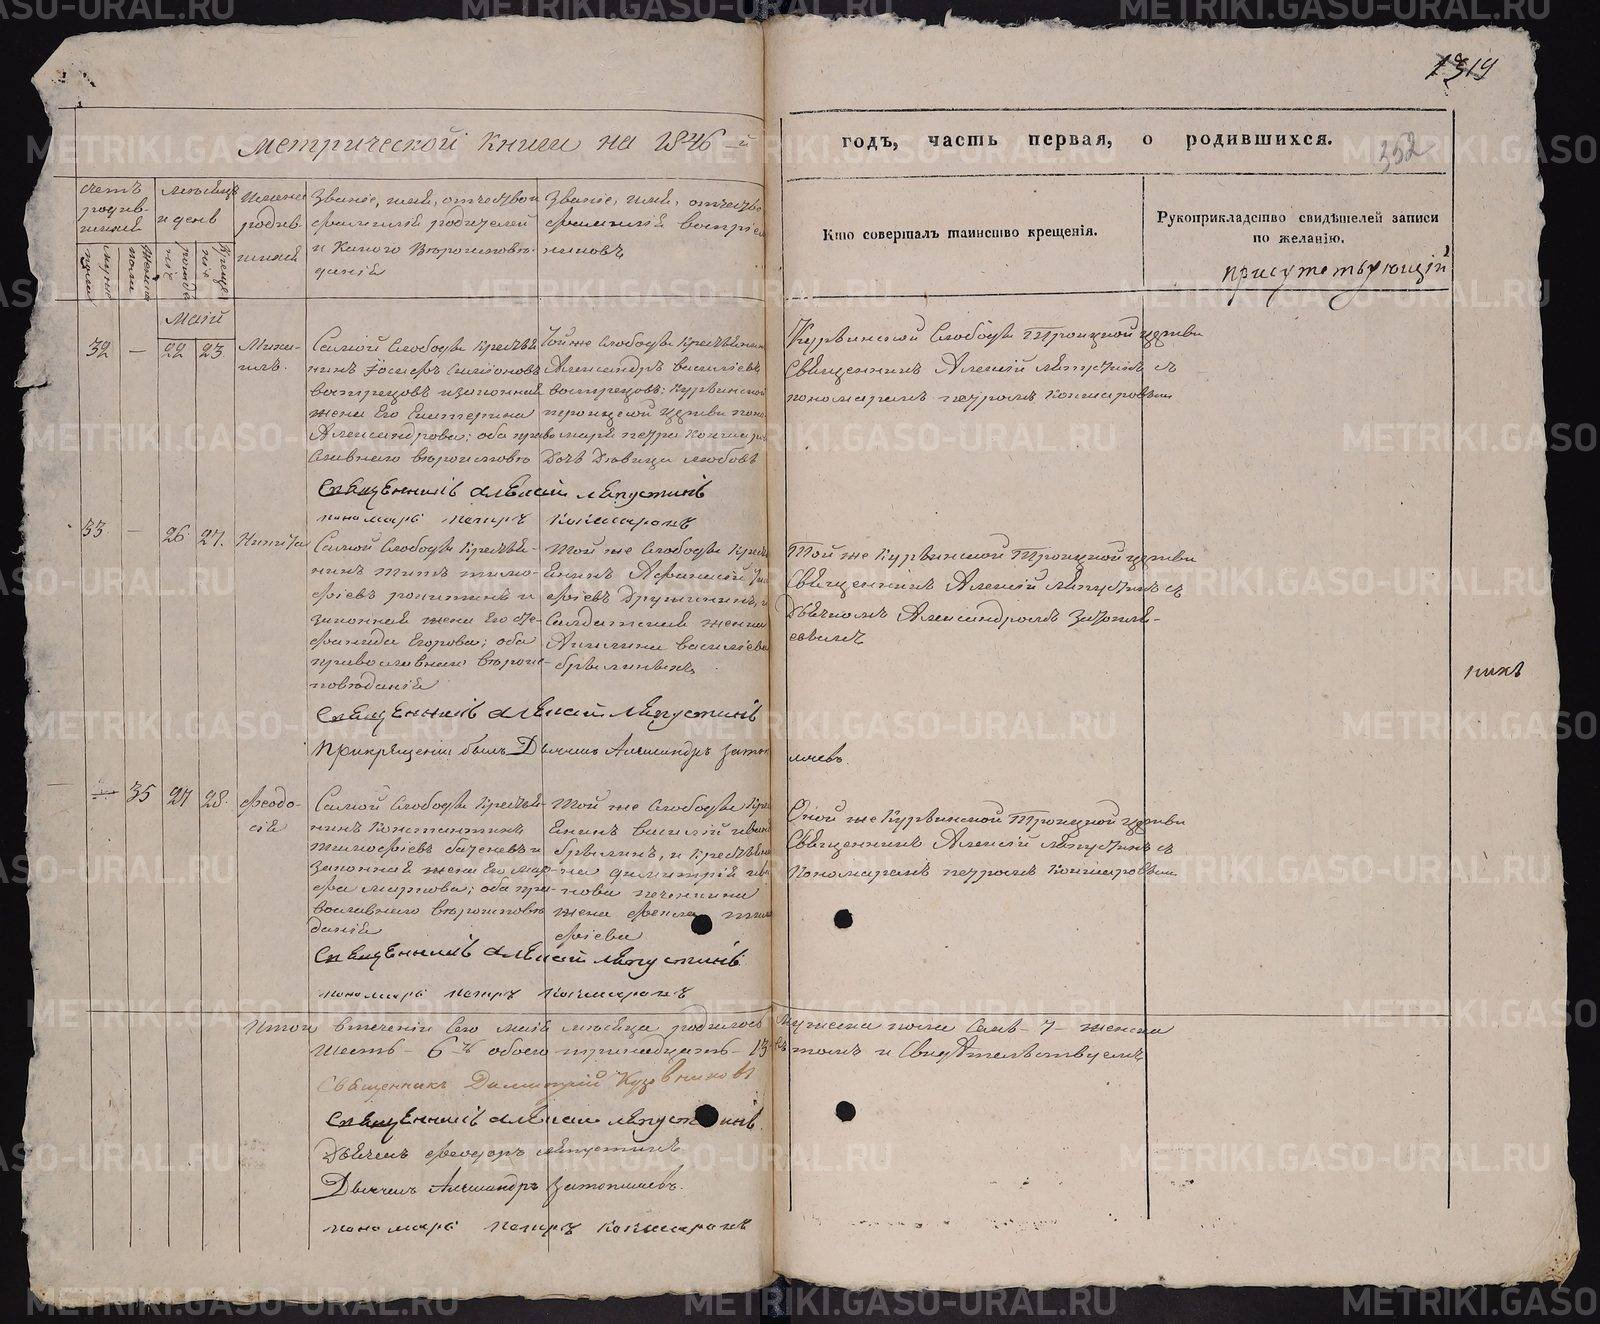 1319
352
метрической книги на 1846-й
годъ, часть первая, о родившихся.
счетъ родив-шихся
мѣсяцъ и день
Имена родив-шихся
Званіе, имя, отчество и фамилія родителей и какого вѣроисповѣ-данія
Званіе, имя, отчество фамилія воспріем-никовъ
Кто совершалъ таинство крещенія.
Рукоприкладство свидѣтелей записи по желанію.
присутствующій
Маій
32 — 22 23 Миха-илъ.
Самой Слободы Крестья-
нинъ Іосифъ Симіоновъ
вострецовъ и законная
жена Его Екатерина
Александрова; оба право-
славнаго вѣроисповѣ
Той же Слободы Крестьянинъ
Александръ василіевъ
вострецовъ; Курьинской
троицкой церкви поно-
маря петра Кокшаро
Дочь Дѣвица любовь
Курьинской Слободы Троицкой церкви
Священникъ Алексій лѣпустинъ съ
пономаремъ петромъ Кокшаровымъ
Священникъ Алексій лѣпустинъ
пономарь петръ Кокшаровъ
33 — 26 27. Никита
Самой Слободы Крестья-
нинъ титъ тимо-
фіевъ и
законная жена Его
Егорова; оба
православнаго вѣроис-
повѣданія
Той же Слободы Крест
Енинъ Афанасій
фіевъ Дружининъ, и
Салдатская женка
Акилина василіева
брылиныхъ
Той же Курьинской Троицкой церкви
Священникъ Алексій лѣпустинъ съ
Дьячкомъ Александромъ Затопля-
евымъ
нихъ
Священникъ Алексій лѣпустинъ
При крещеніи былъ Дьячекъ Александръ Затоп
ляевъ.
35 27 28. Феодо-сія
Самой Слободы Крестья-
нинъ Константинъ
тимофіевъ и
законная жена Его мар-
фа маркова; оба пра-
вославнаго вѣроисповѣ
данія
Той же Слободы Кре
Енинъ василій ивано
брылинъ, и Крестьяни
на димитрія ива
нова печенкина
жена Фекла тимо
фіева
Оной же Курьинской Троицкой церкви
Священникъ Алексій лѣпустинъ съ
Пономаремъ петромъ Кокшаровымъ
Священникъ Алексій лѣпустинъ
пономарь петръ Кокшаровъ
Итого втеченіи Сего маія мѣсяца родилось мужеска пола Семь - 7 - женска
шесть - 6-ть обоего тринадцать - 13 въ томъ и Свидѣтельствуемъ
Священникъ Димитрій Кузовниковъ
Священникъ Алексій лѣпустинъ.
Дьячекъ феодоръ лѣпустинъ
Дьячекъ Александръ Затопляевъ.
пономарь петръ Кокшаровъ
METRIKI.GASO-URAL.RU